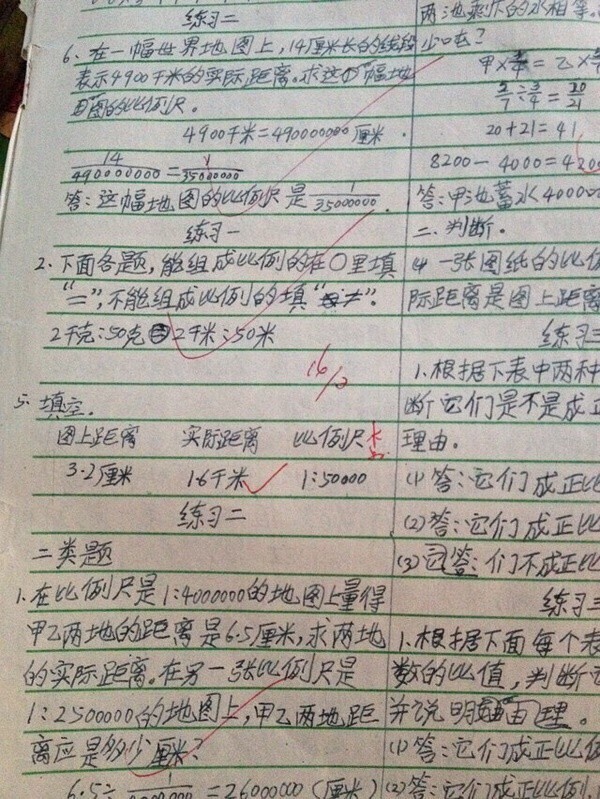 练习二
6、在一幅世界地图上,14厘米长的线段
表示4900千米的实际距离。求这幅地
图的比例尺。
4900千米=490000000厘米
14/490000000=1/35000000
答:这幅地图的比例尺是1/35000000.
练习一
2、下面各题,能组成比例的在○里填
“=”,不能组成比例的填“≠”。
2千克:50克=2千米:50米
16/3
5、填空。
图上距离 实际距离 比例尺
3.2厘米 1.6千米 1:50000
练习二
二类题
1、在比例尺是1:4000000的地图上量得
甲乙两地的距离是6.5厘米,求两地
的实际距离。在另一张比例尺是
1:2500000的地图上,甲乙两地距
离应是多少厘米?
=26000000(厘米)
两池剩下的水相等。
少吨?
20+21=41
8200-4000=4200
答:甲池蓄水4000
二、判断。
一张图纸的比例
际距离是图上距离
练习三
1、根据下表中两种
断它们是不是成正
理由。
(1)答:它们成正比
(2)答:它们成正比
(3)答:们不成正比
练习三
1、根据下面每个表
数的比值,判断
并说明理由。
(1)答:它们成正比例
(2)答:它们成正比例